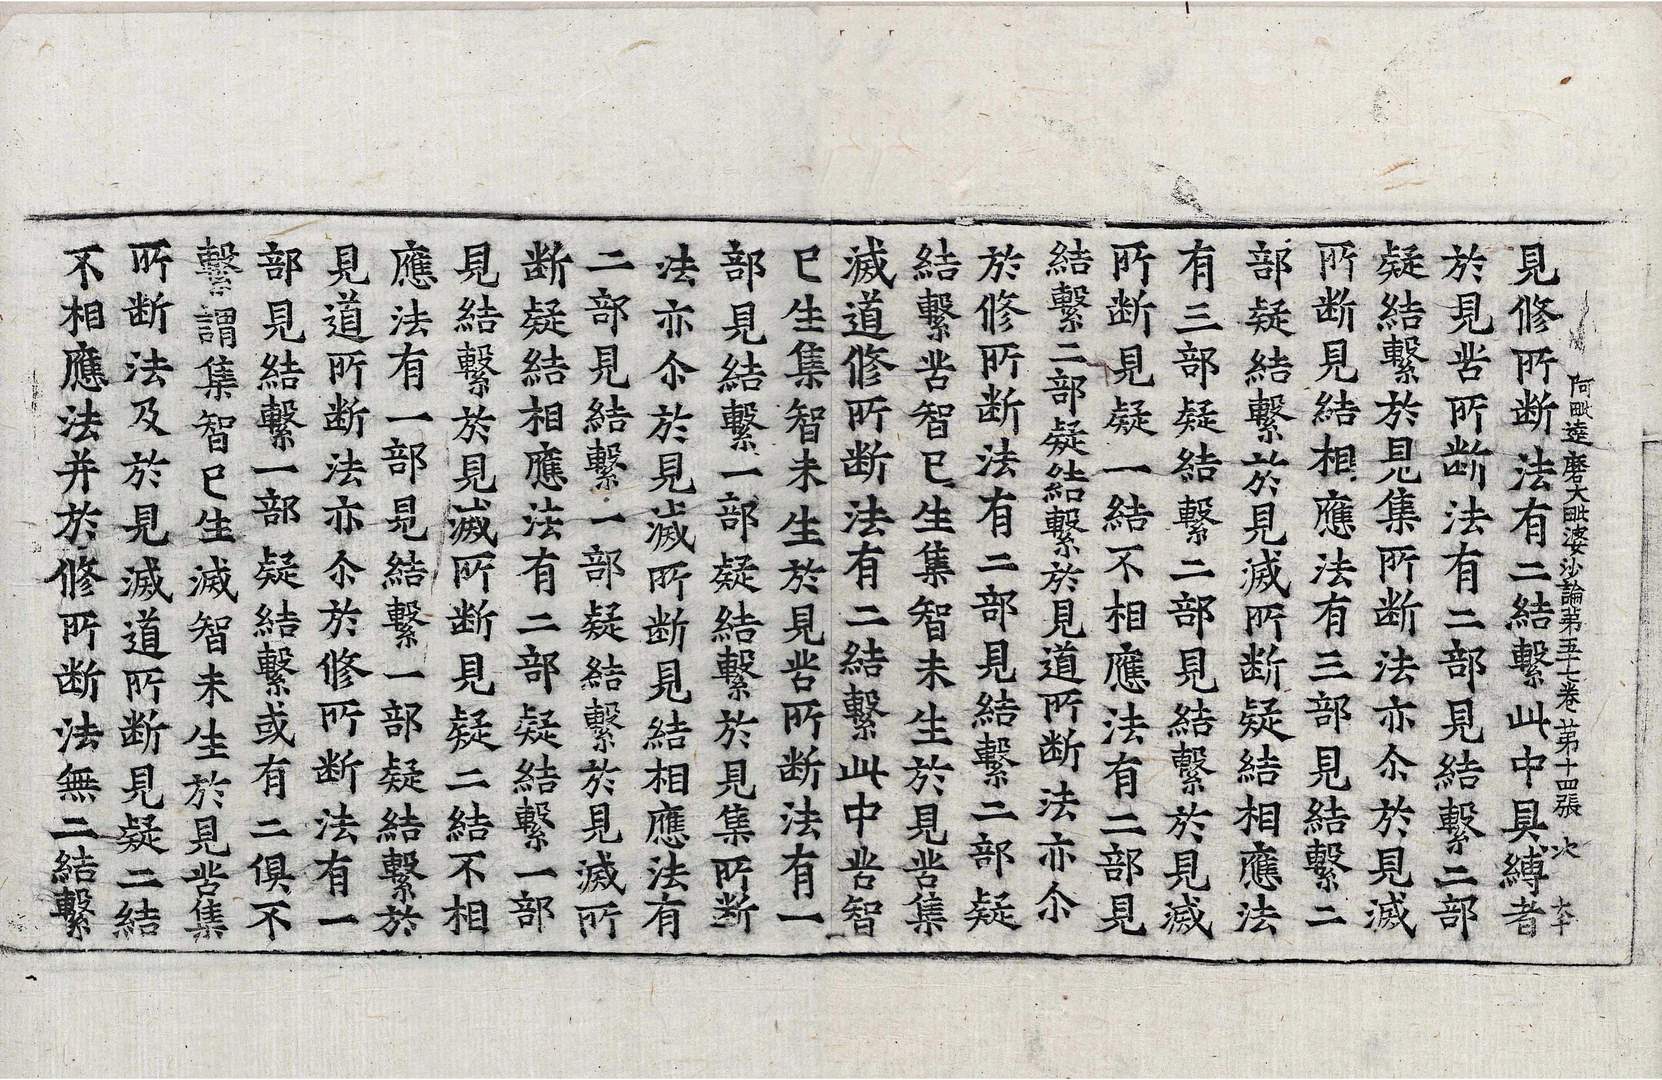 阿毗達磨大毗婆沙論苐五十七卷 苐十四張 次
見修所断法有二結繫此中具縛者
於見苦所断法有二部見結繫二部
疑結繫於見集所断法亦尒於見滅
所断見結相應法有三部見結繫二
部疑結繫於見滅所断疑結相應法
有三部疑結繫二部見結繫於見滅
所断見疑一結不相應法有二部見
結繫二部疑結繫於見道所断法亦尒
於修所断法有二部見結繫二部疑
結繫苦智已生集智未生於見苦集
滅道修所断法有二結繫此中苦智
已生集智未生於見苦所断法有一
部見結繫一部疑結繫於見集所断
法亦尒於見滅所断見結相應法有
二部見結繫一部疑結繫於見滅所
断疑結相應法有二部疑結繫一部
見結繫於見滅所断見疑二結不相
應法有一部見結繫一部疑結繫於
見道所断法亦尒於修所断法有一
部見結繫一部疑結繫或有二俱不
繫謂集智已生滅智未生於見苦集
所断法及於見滅道所断見疑二結
不相應法并於修所断法無二結繫